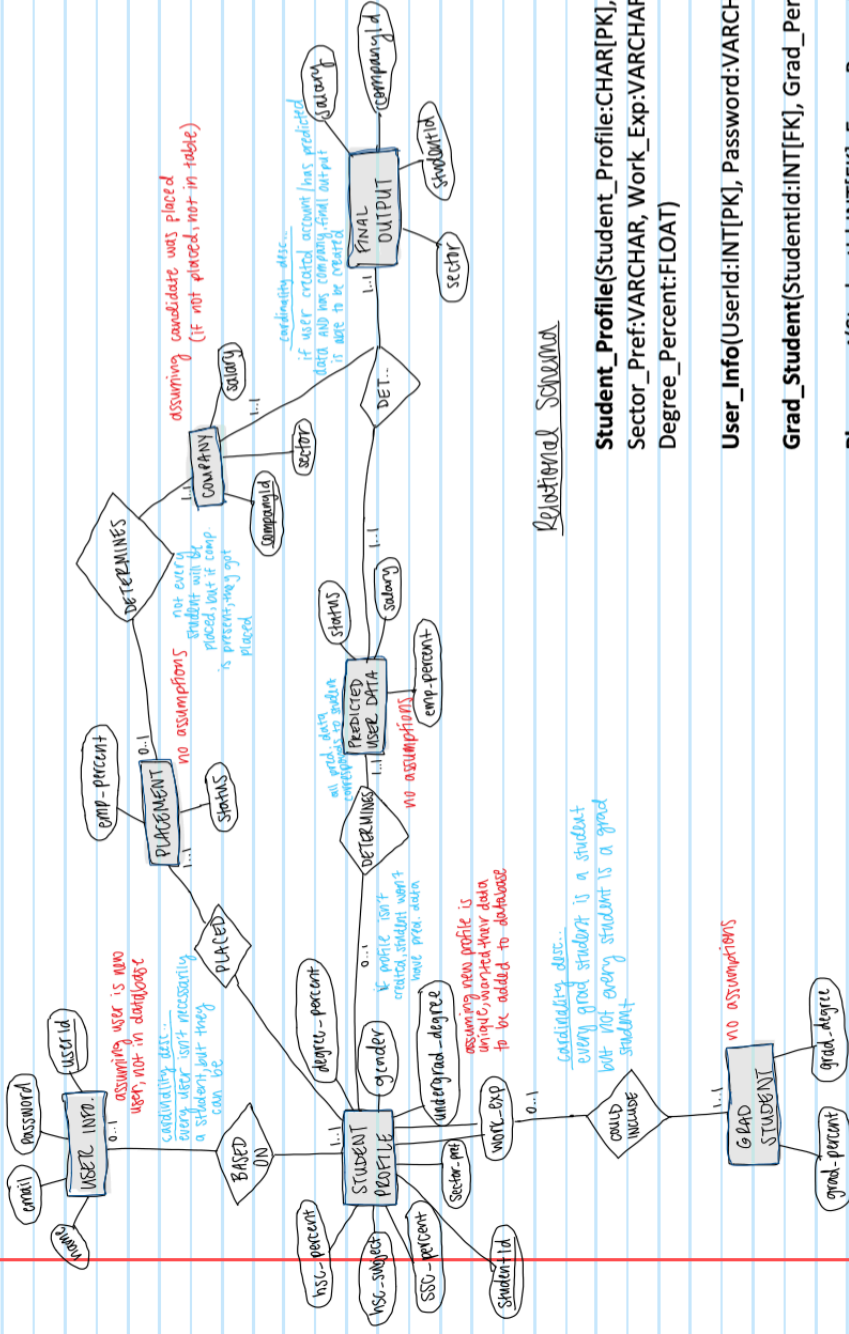 email
password
name
userId
USER INFO.
0..1
assuming user is new
user, not in database
cardinality desc...
every user isn't necessarily
a student, but they
can be
BASED
ON
1..1
STUDENT
PROFILE
hsc-percent
hsc-subject
SSC-percent
studentId
sector-pref
work-exp
undergrad-degree
gender
degree-percent
PLACED
1..1
PLACEMENT
emp-percent
status
0..1
no assumptions
DETERMINES
not every
student will be
placed, but if comp.
is present, they got
placed
1..1
COMPANY
companyId
sector
salary
assuming candidate was placed
(if not placed, not in table)
1..1
0..1
if profile isn't
created, student won't
have pred. data
assuming new profile is
unique, wanted their data
to be added to database
DETERMINES
1..1
all pred. data
corresponds to student
PREDICTED
USER DATA
status
salary
emp-percent
no assumptions
1..1
DET..
1..1
cardinality desc...
if user created account/has predicted
data AND has company, final output
is able to be created
FINAL
OUTPUT
salary
companyId
studentId
sector
0..1
cardinality desc...
every grad student is a student
but not every student is a grad
student
COULD
INCLUDE
1..1
GRAD
STUDENT
no assumptions
grad-percent
grad-degree
Relational Schema
Student_Profile(Student_Profile:CHAR[PK],
Sector_Pref:VARCHAR, Work_Exp:VARCHAR
Degree_Percent:FLOAT)
User_Info(UserId:INT[PK], Password:VARCH
Grad_Student(StudentId:INT[FK], Grad_Per